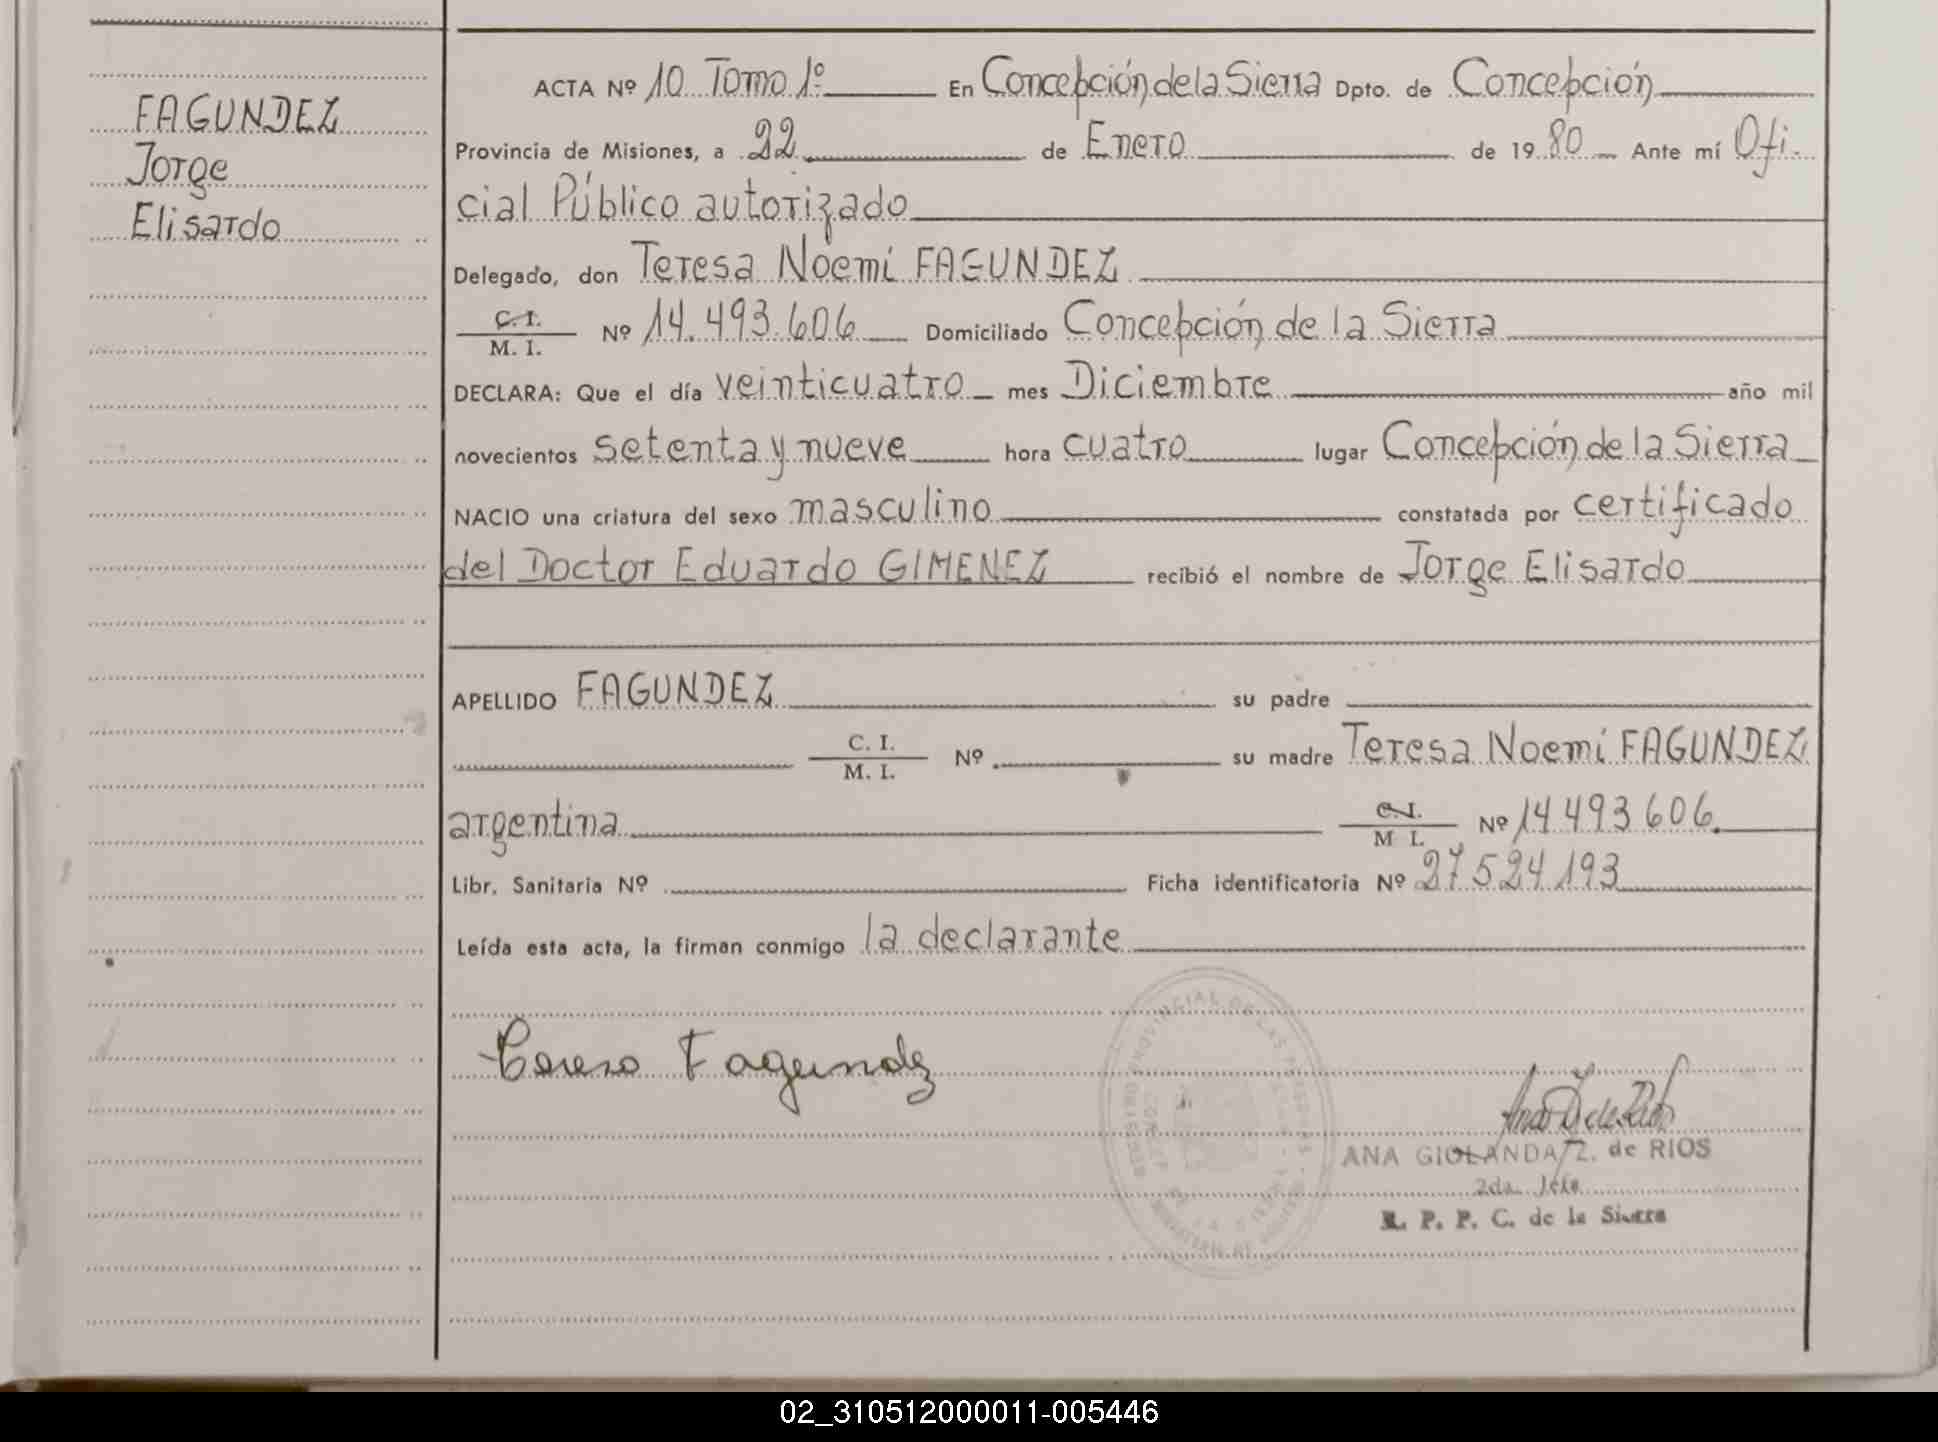 FAGUNDEZ
Jorge
Elisardo
ACTA Nº 10 Tomo 1º En Concepción de la Sierra Dpto. de Concepción
Provincia de Misiones, a 22 de Enero de 1980 Ante mí Ofi-
cial Público autorizado
Delegado, don Teresa Noemí FAGUNDEZ
C. I.
M. I. Nº 14.493.606 Domiciliado Concepción de la Sierra
DECLARA: Que el día veinticuatro mes Diciembre año mil
novecientos setenta y nueve hora cuatro lugar Concepción de la Sierra
NACIO una criatura del sexo masculino constatada por certificado
del Doctor Eduardo GIMENEZ recibió el nombre de Jorge Elisardo
APELLIDO FAGUNDEZ su padre
C. I.
M. I. Nº su madre Teresa Noemí FAGUNDEZ
argentina C. I.
M. I. Nº 14.493.606.
Libr. Sanitaria Nº Ficha identificatoria Nº 27.524.193
Leída esta acta, la firman conmigo la declarante
Teresa Fagundez
PROVINCIAL DE LAS
ANA GIOLANDA Z. de RIOS
2da. Jefe
R. P. P. C. de la Sierra
02_310512000011-005446